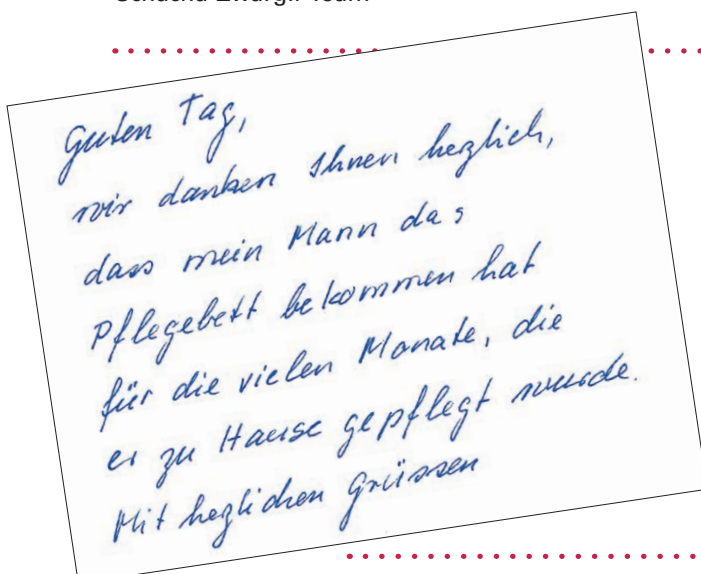 Guten Tag,
wir danken Ihnen herzlich,
dass mein Mann das
Pflegebett bekommen hat
für die vielen Monate, die
er zu Hause gepflegt wurde.
Mit herzlichen Grüssen